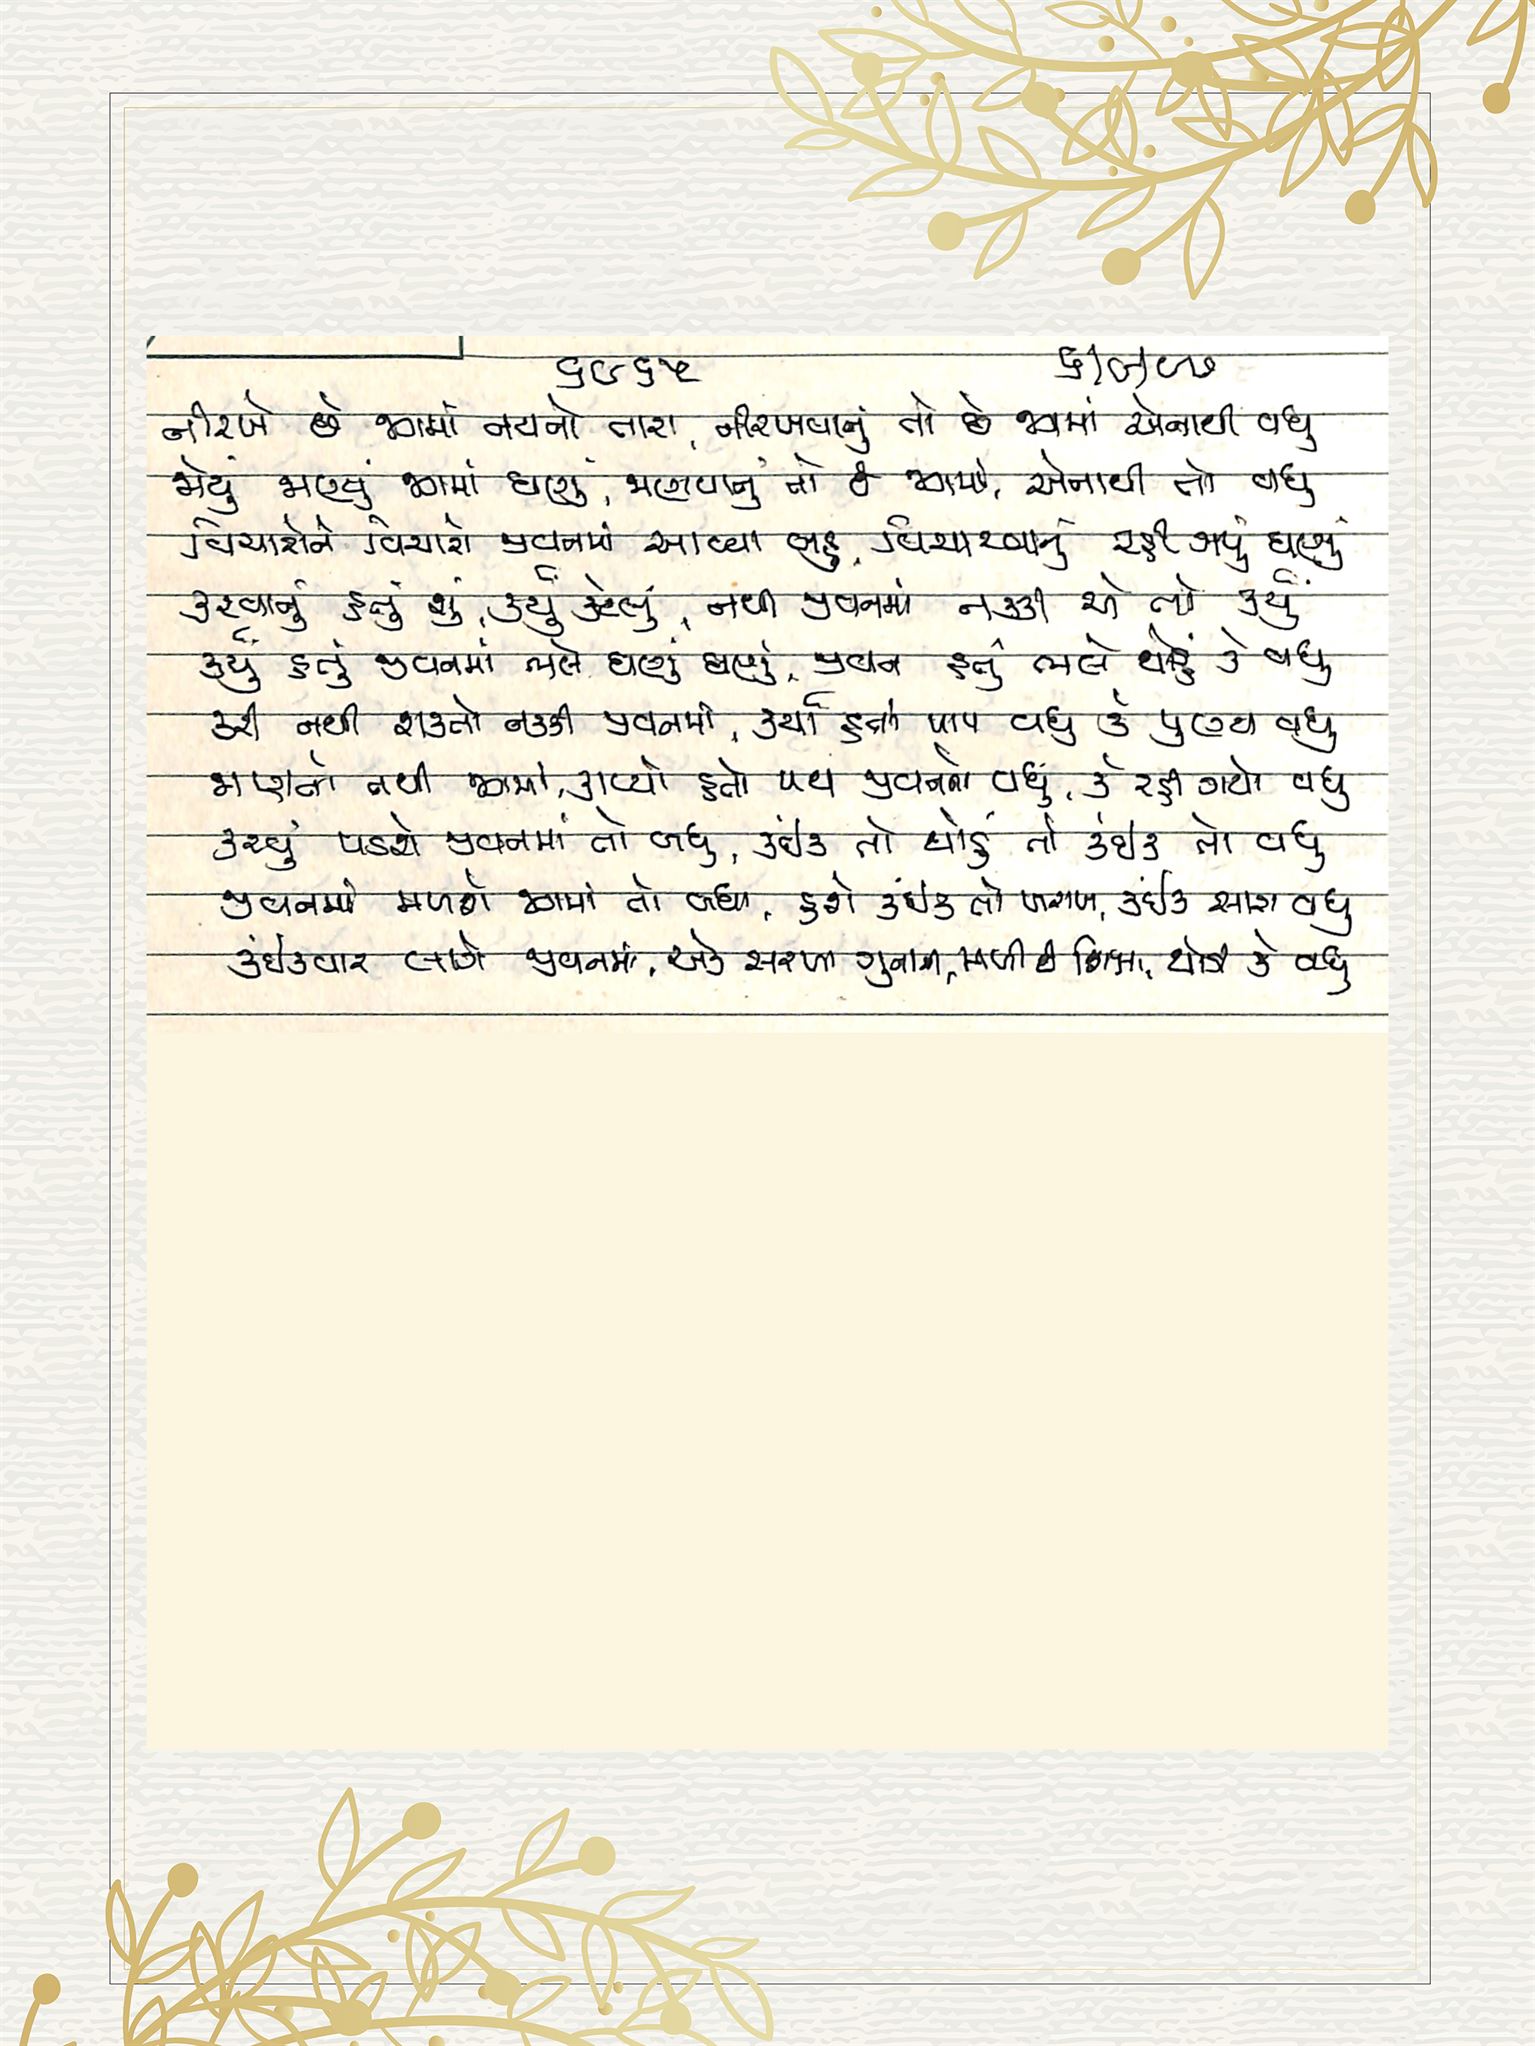 ૬૯૬૫
નીરખે છે જગમાં નયનો તારા, નીરખવાનું તો છે જગમાં એનાથી વધુ
જોયું જાણ્યું જગમાં ઘણું, જાણવાનું તો છે જગમાં, એનાથી તો વધુ
વિચારોને વિચારો જીવનમાં આવ્યા બહુ, વિચારવાનું રહી ગયું ઘણું
કરવાનું હતું શું, કર્યું કેટલું, નથી જીવનમાં નક્કી એ તો કર્યું
કર્યું હતું જીવનમાં ભલે ઘણું ઘણું, જીવન હતું ભલે થોડું કે વધુ
કરી નથી શકતો નક્કી જીવનમાં, કર્યા હતાં પાપ વધુ કે પુણ્ય વધુ
જાણતો નથી જગમાં, કાપ્યો હતો પથ જીવનનો વધું, કે રહી ગયો વધુ
કરવું પડશે જીવનમાં તો બધુ, કંઈક તો થોડું તો કંઈક તો વધુ
જીવનમાં મળશે જગમાં તો બધા, હશે કંઈક તો ખરાબ, કંઈક સારા વધુ
કંઈકવાર લાગે જીવનમાં, એક સરખા ગુનાના, મળી છે શિક્ષા, થોડી કે વધુ